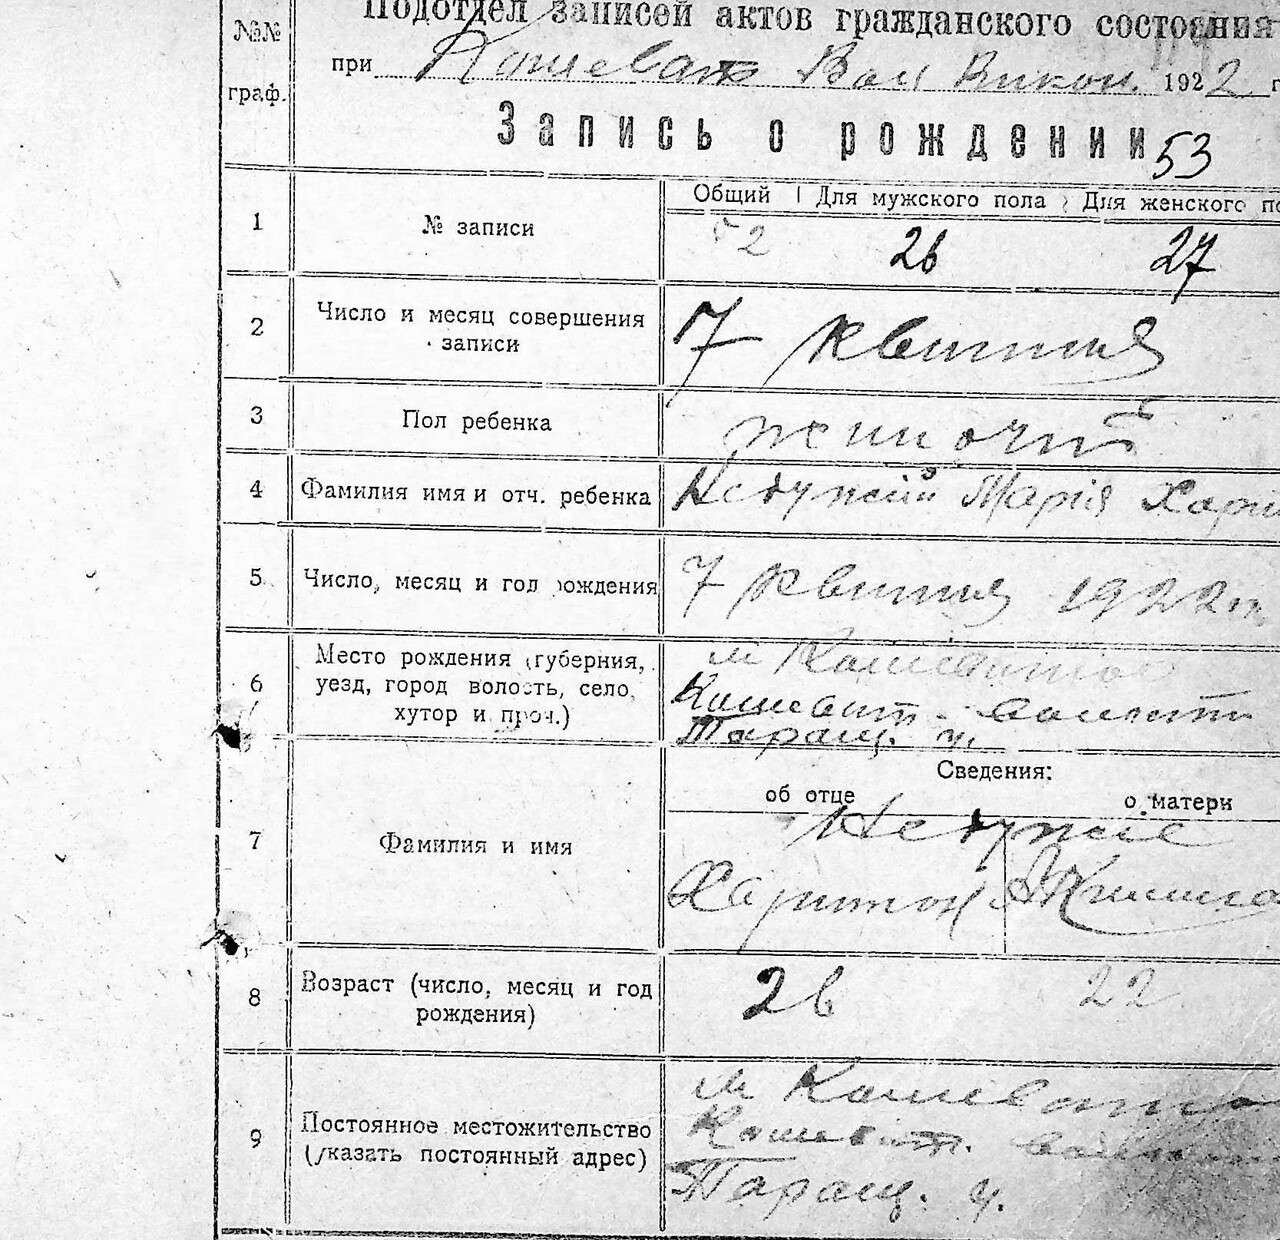 Подотдел записей актов гражданского состояния
№№ граф.
при Кошеват Вол Викон. 1922 г
Запись о рождении 53
Общий Для мужского пола Для женского по
1 № записи 52 26 27
2 Число и месяц совершения записи 7 квитня
3 Пол ребенка жиночій
4 Фамилия имя и отч. ребенка Недужій Марія Хари
5 Число, месяц и год рождения 7 квитня 1922 г.
6 Место рождения (губерния, м Кошеватое
уезд, город волость, село, Кошеват. волости
хутор и проч.) Таращ. у.
Сведения:
об отце о матери
7 Фамилия и имя Недужіе
Харитон
8 Возраст (число, месяц и год рождения) 26 22
9 Постоянное местожительство (указать постоянный адрес) м Кошевато
Кошеват.
Таращ. у.